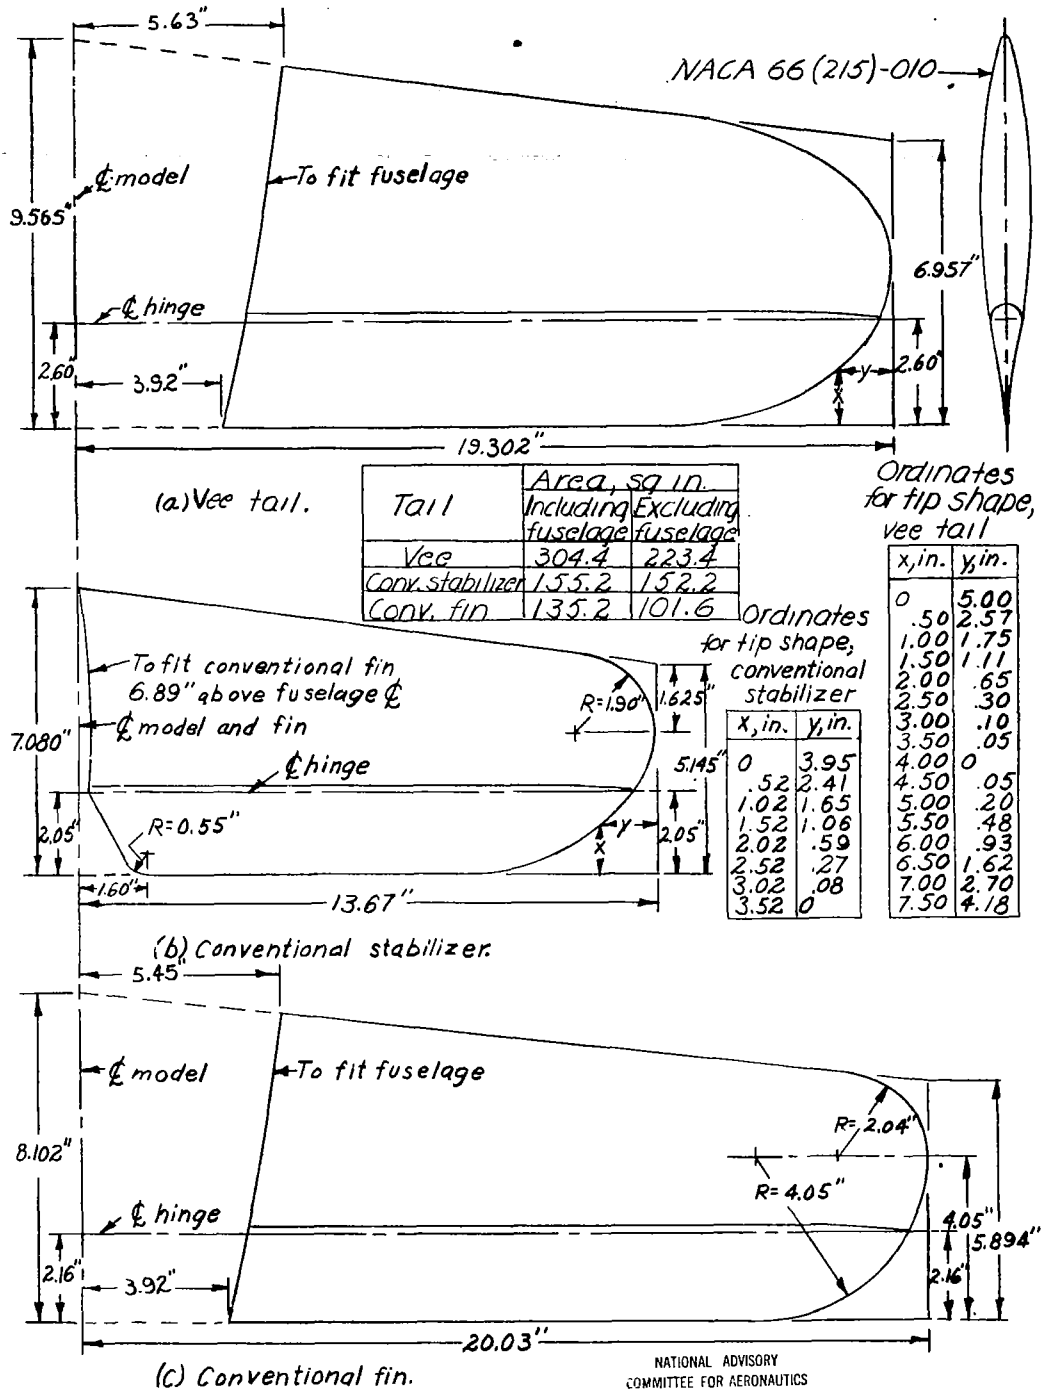 5.63"
NACA 66(215)-010
℄ model
To fit fuselage
9.565"
6.957"
℄ hinge
2.60"
3.92"
y
2.60"
x
19.302"
(a) Vee tail.
Tail
Area, sq in.
Including fuselage
Excluding fuselage
Vee 304.4 223.4
Conv. stabilizer 155.2 152.2
Conv. fin 135.2 101.6
Ordinates
for tip shape,
vee tail
x, in. y, in.
0 5.00
.50 2.57
1.00 1.75
1.50 1.11
2.00 .65
2.50 .30
3.00 .10
3.50 .05
4.00 0
4.50 .05
5.00 .20
5.50 .48
6.00 .93
6.50 1.62
7.00 2.70
7.50 4.18
Ordinates
for tip shape,
conventional
stabilizer
x, in. y, in.
0 3.95
.52 2.41
1.02 1.65
1.52 1.06
2.02 .59
2.52 .27
3.02 .08
3.52 0
To fit conventional fin
6.89" above fuselage ℄
R=1.90"
1.625"
℄ model and fin
7.080"
5.145"
℄ hinge
2.05"
R=0.55"
y
x
2.05"
1.60"
13.67"
(b) Conventional stabilizer.
5.45"
℄ model
To fit fuselage
R= 2.04"
8.102"
R= 4.05"
℄ hinge
4.05"
5.894"
2.16"
3.92"
2.16"
20.03"
(c) Conventional fin.
NATIONAL ADVISORY
COMMITTEE FOR AERONAUTICS